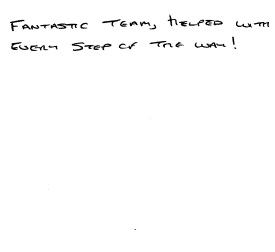 FANTASTIC TEAM, HELPED WITH
EVERY STEP OF THE WAY!